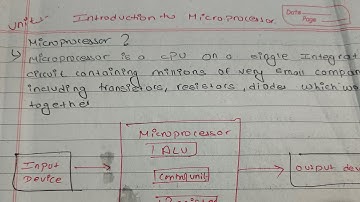 Unit
Introduction to Microprocessor
Date
Page
Microprocessor ?
Microprocessor is a CPU on a single Integrat
circuit containing minions of very small compan
including transistors, resistors, diodes which wo
together
Microprocessor
ALU
Input
Device
Control unit
output dev